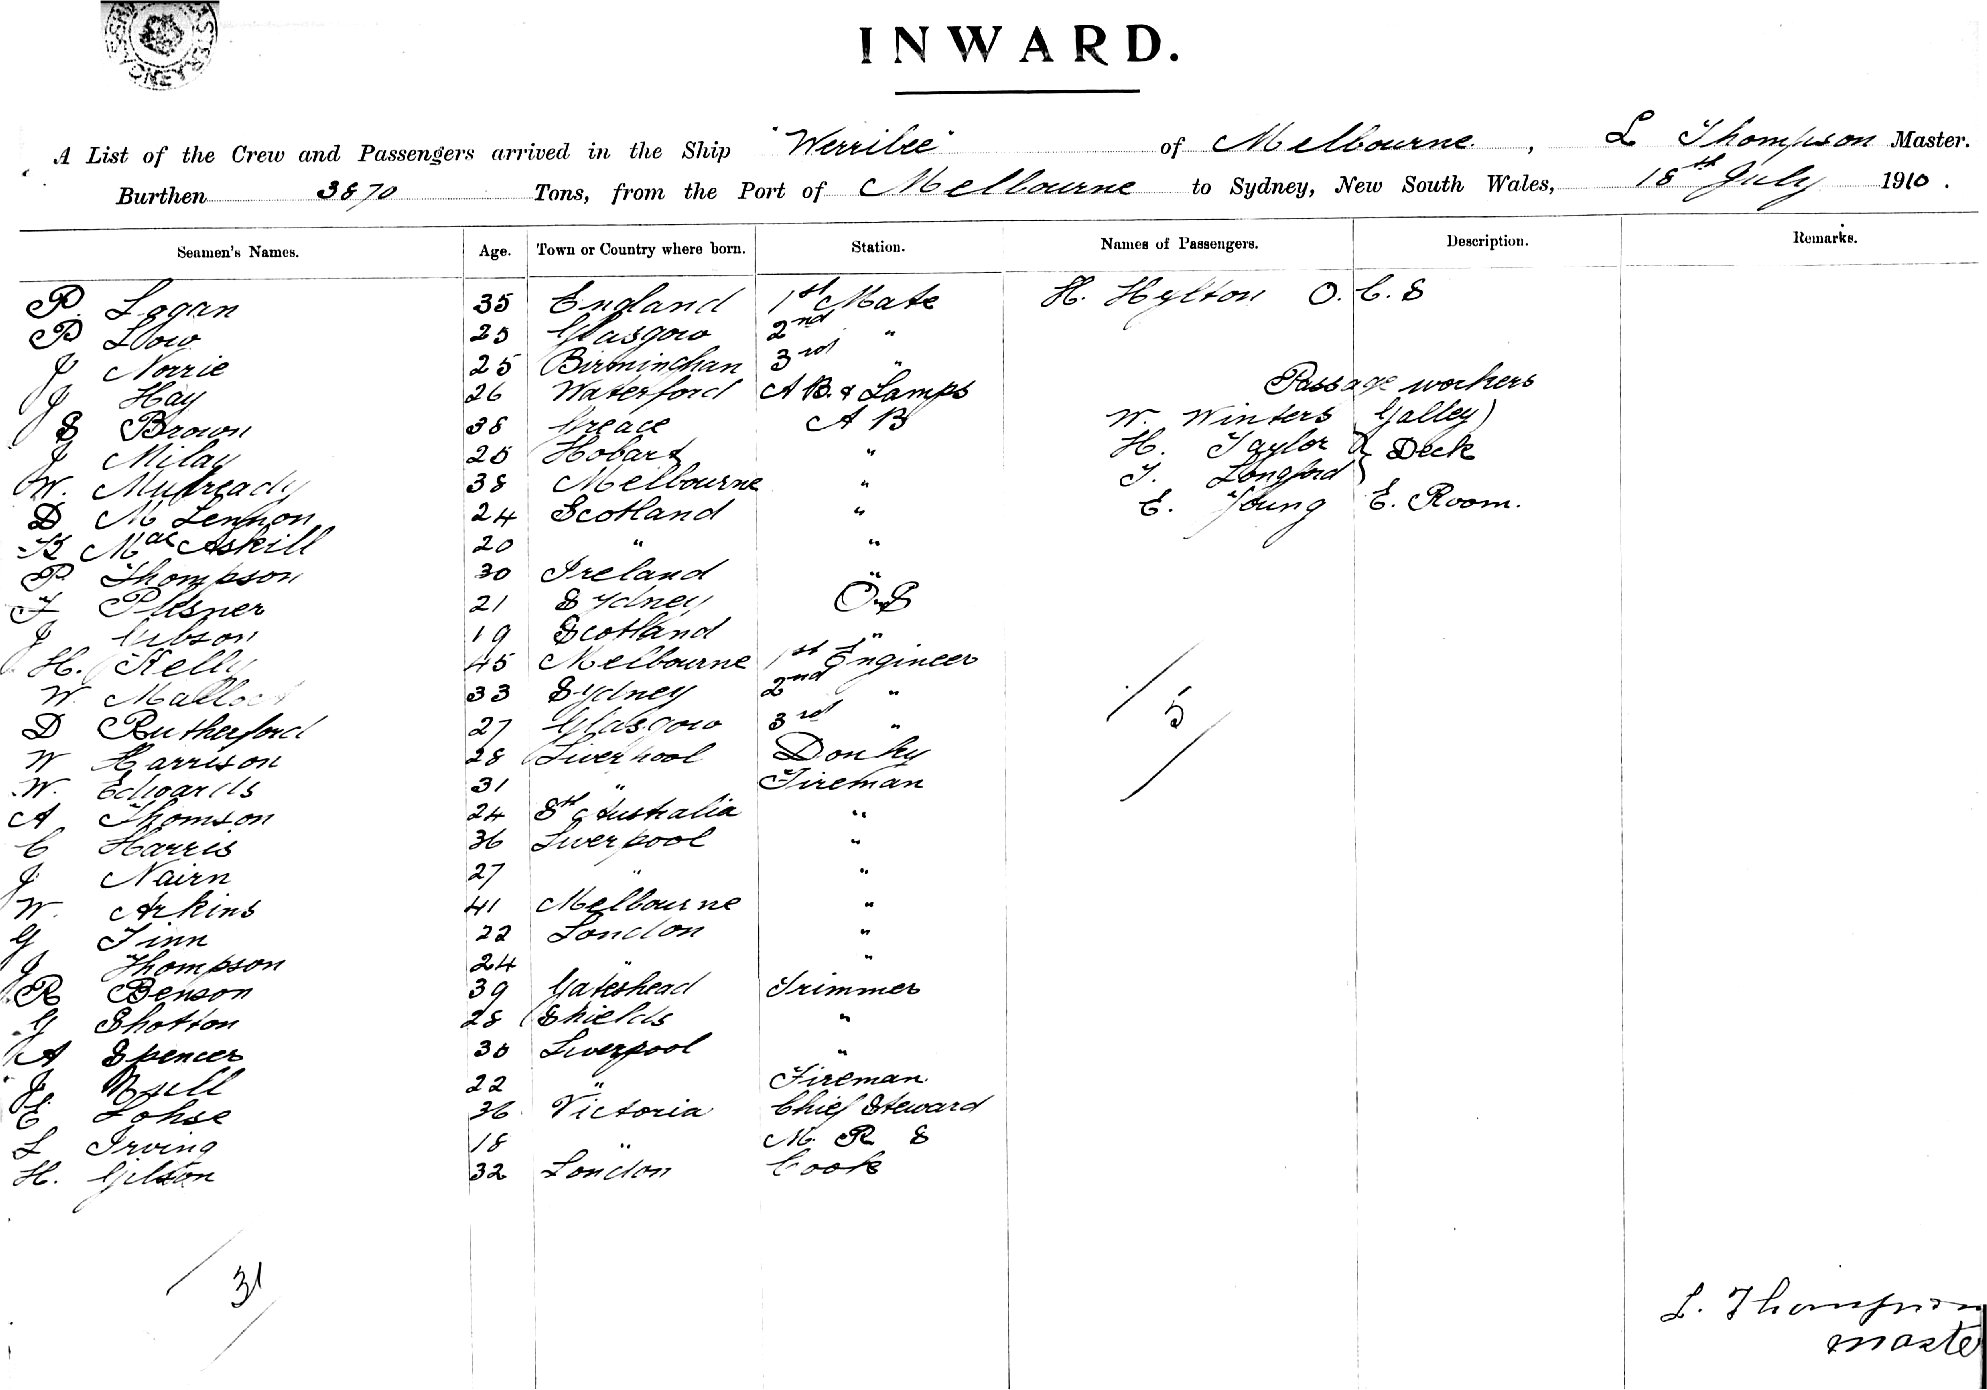 INWARD.
A List of the Crew and Passengers arrived in the Ship "Werribee" of Melbourne, L Thompson Master.
Burthen 3870 Tons, from the Port of Melbourne to Sydney, New South Wales, 18th July 1910.
Seamen's Names. Age. Town or Country where born. Station. Names of Passengers. Description. Remarks.
P. Logan 35 England 1st Mate H. Hylton O.C.S
P Low 25 Glasgow 2nd "
J Norrie 25 Birminghan 3rd "
J Hay 26 Waterford A B. & Lamps Passage workers
S Brown 38 Greace A B W. Winters Galley)
J Milay 25 Hobart " H. Taylor } Deck
W. Mulready 38 Melbourne " T. Longford }
D McLennon 24 Scotland " E. Young E. Room.
K MacAskill 20 " "
P Thompson 30 Ireland "
F Plesner 21 Sydney O S
J Gibson 19 Scotland "
H. Kelly 45 Melbourne 1st Engineer
W. 33 Sydney 2nd "
D Rutherford 27 Glasgow 3rd "
W Harrison 28 Liverpool Donky
W. Edwards 31 " Fireman
A Thomson 24 Sth Australia "
C Harris 36 Liverpool "
J Nairn 27 " "
W. Arkins 41 Melbourne "
G Finn 22 London "
J Thompson 24 " "
R Benson 39 Gateshead Trimmer
G Shotton 28 Shields "
A Spencer 30 Liverpool "
J 22 " Fireman
E Lohse 36 Victoria Chief Steward
L Irving 18 " M R S
H. Gilston 32 London Cook
/ 5 /
/ 31 /
L. Thompson
Maste